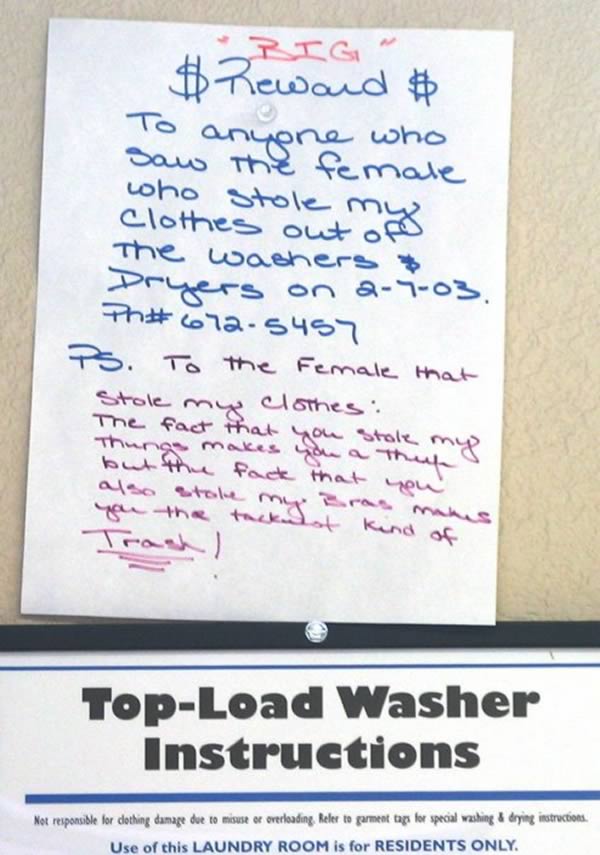 "BIG"
$ Reward $
To anyone who
saw the female
who stole my
clothes out of
the washers &
Dryers on 2-7-03.
Ph# 672-5457
PS. To the Female that
stole my clothes:
The fact that you stole my
things makes you a thief
but the fact that you
also stole my Bras makes
you the tackiest kind of
Trash!
Top-Load Washer
Instructions
Not responsible for clothing damage due to misuse or overloading. Refer to garment tags for special washing & drying instructions.
Use of this LAUNDRY ROOM is for RESIDENTS ONLY.